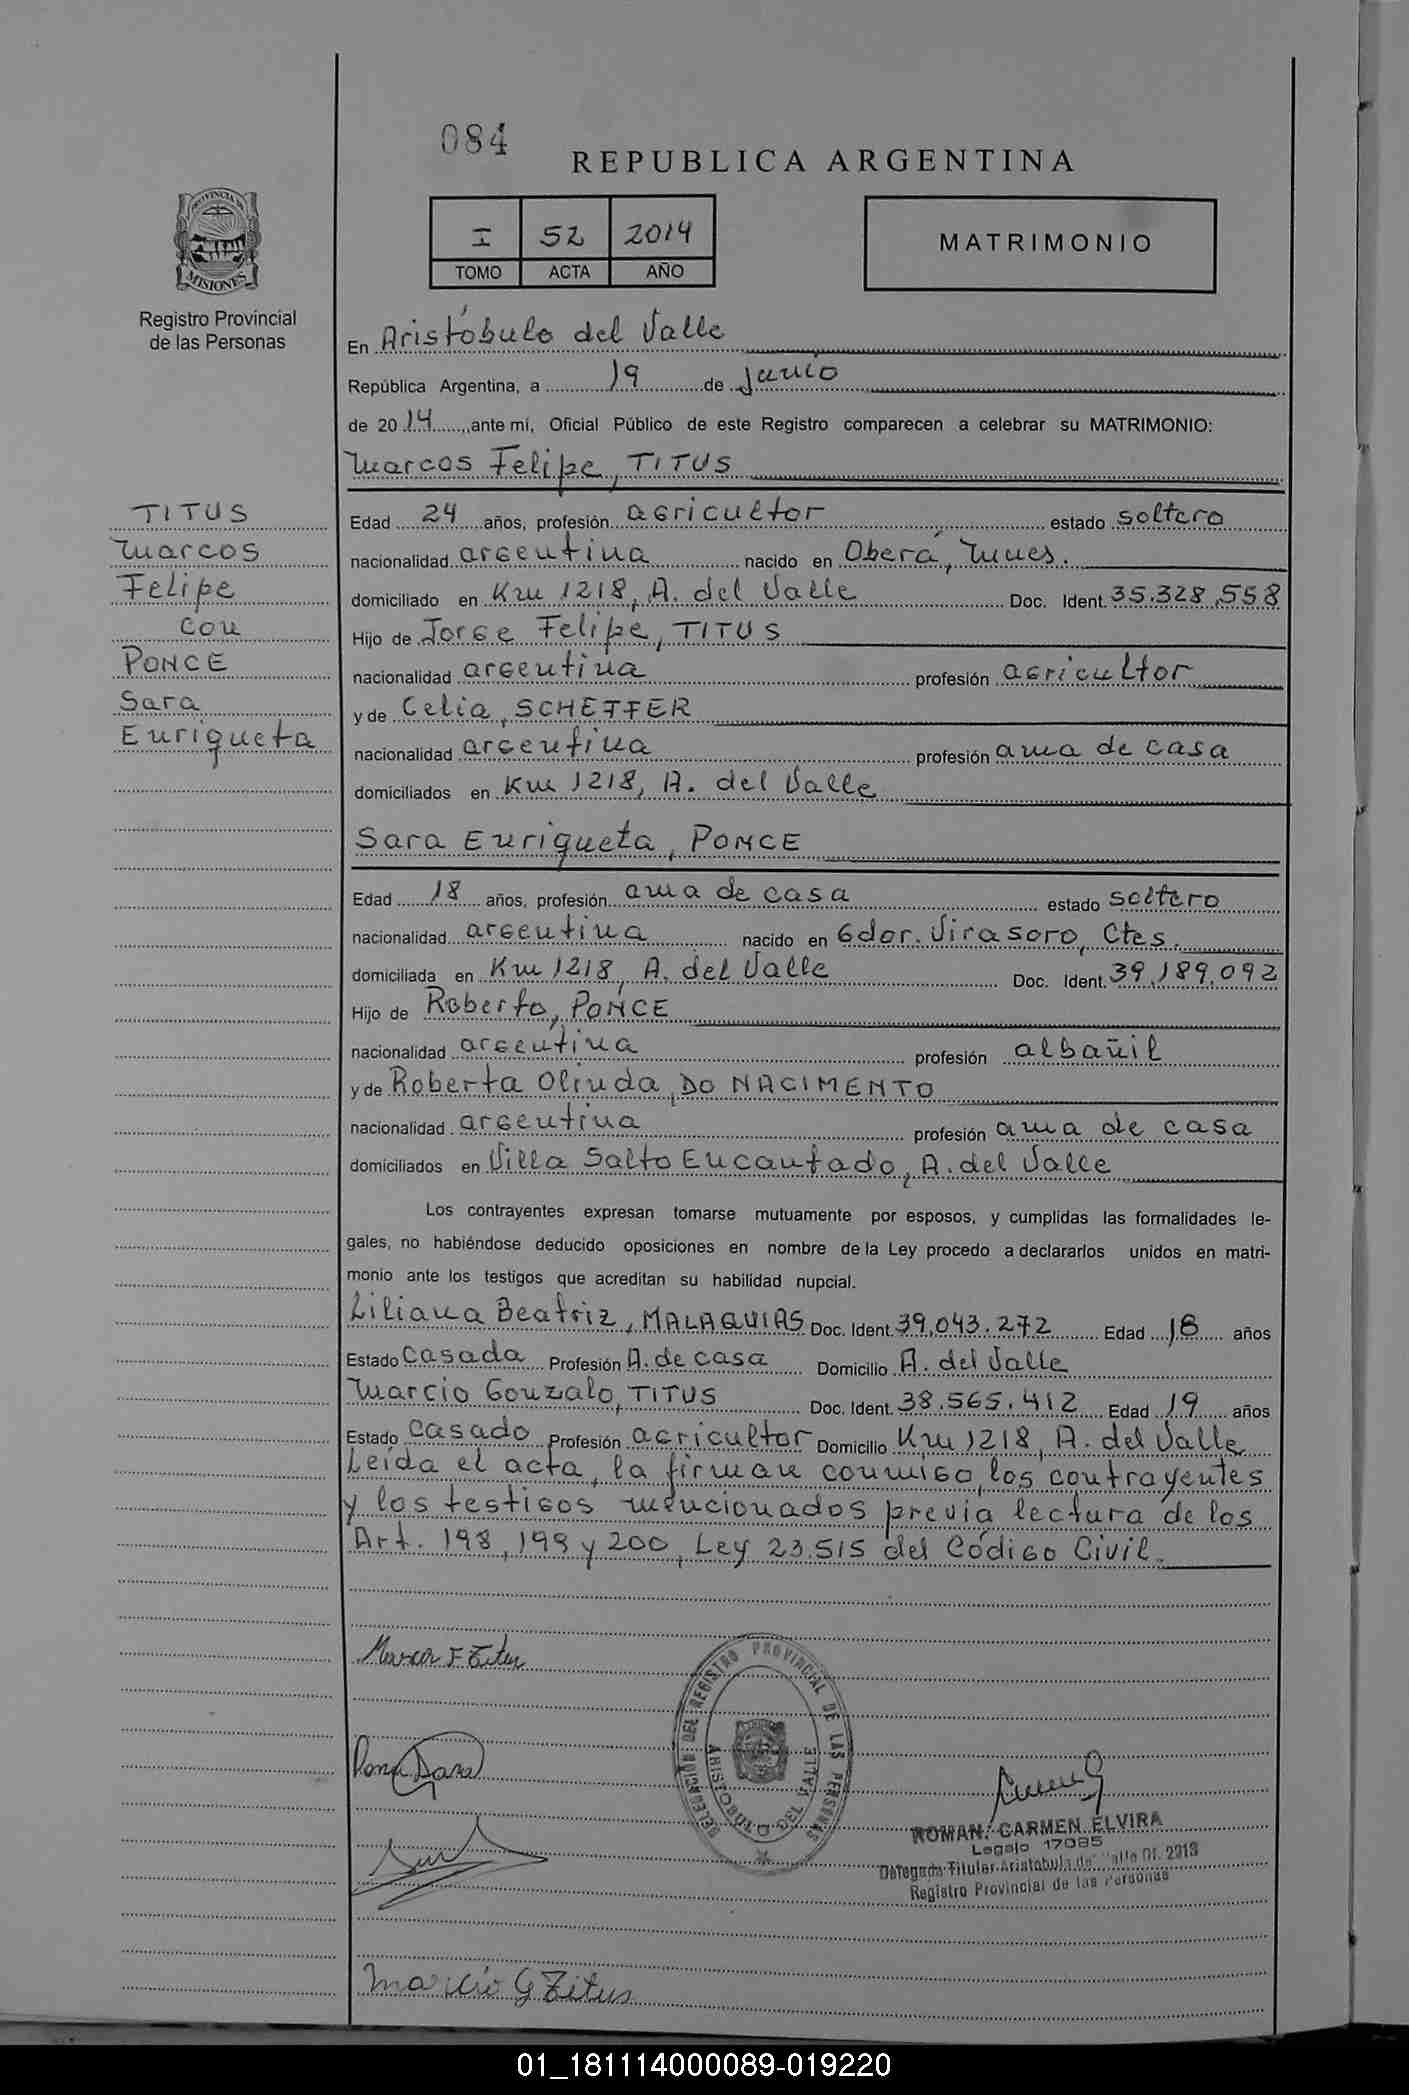 084
REPUBLICA ARGENTINA
I 52 2014
TOMO ACTA AÑO
MATRIMONIO
PROVINCIA DE
MISIONES
Registro Provincial
de las Personas
TITUS
Marcos
Felipe
con
PONCE
Sara
Enriqueta
En Aristóbulo del Valle
República Argentina, a 19 de junio
de 2014, ante mí, Oficial Público de este Registro comparecen a celebrar su MATRIMONIO:
Marcos Felipe, TITUS
Edad 24 años, profesión agricultor estado soltero
nacionalidad argentina nacido en Oberá, Mnes.
domiciliado en Km 1218, A. del Valle Doc. Ident. 35.328.558
Hijo de Jorge Felipe, TITUS
nacionalidad argentina profesión agricultor
y de Celia, SCHEFFER
nacionalidad argentina profesión ama de casa
domiciliados en Km 1218, A. del Valle
Sara Enriqueta, PONCE
Edad 18 años, profesión ama de casa estado soltero
nacionalidad argentina nacido en Gdor. Virasoro, Ctes.
domiciliada en Km 1218, A. del Valle Doc. Ident. 39.189.092
Hijo de Roberto, PONCE
nacionalidad argentina profesión albañil
y de Roberta Olinda, DO NACIMENTO
nacionalidad argentina profesión ama de casa
domiciliados en Villa Salto Encantado, A. del Valle
Los contrayentes expresan tomarse mutuamente por esposos, y cumplidas las formalidades le-
gales, no habiéndose deducido oposiciones en nombre de la Ley procedo a declararlos unidos en matri-
monio ante los testigos que acreditan su habilidad nupcial.
Liliana Beatriz, MALAQUIAS Doc. Ident. 39.043.272 Edad 18 años
Estado casada Profesión A. de casa Domicilio A. del Valle
Marcio Gonzalo, TITUS Doc. Ident. 38.565.412 Edad 19 años
Estado casado Profesión agricultor Domicilio Km 1218, A. del Valle
Leída el acta, la firman conmigo, los contrayentes
y los testigos mencionados previa lectura de los
Art. 198, 199 y 200, Ley 23.515 del Código Civil.
Marcos F Titus
Ponce Sara
DELEGACION DEL REGISTRO PROVINCIAL DE LAS PERSONAS
ARISTOBULO DEL VALLE
ROMAN, CARMEN ELVIRA
Legajo 17085
Delegada Titular Aristobulo del Valle Df. 2213
Registro Provincial de las Personas
Marcio G Titus
01_181114000089-019220